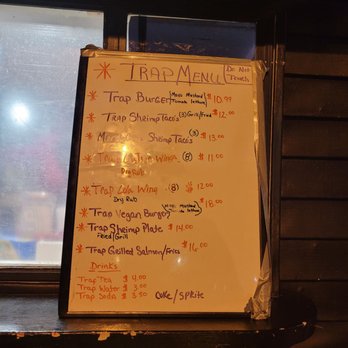 * TRAP MENU Do Not Touch
* Trap Burger (Mayo Mustard Tomato lettuce) $10.99
* Trap Shrimp Tacos (3) Grill/Fried $12.00
* Shrimp Tacos (3) $13.00
* Trap Wing (5) $11.00
Dry Rub
* Trap Wing (8) $12.00
Dry Rub
* Trap Vegan Burger $18.00
* Trap Shrimp Plate $14.00
Fried/Grill
* Trap Grilled Salmon/Fries $16.00
Drinks
Trap Tea $4.00
Trap Water $3.50
Trap Soda $3.50 Coke/Sprite